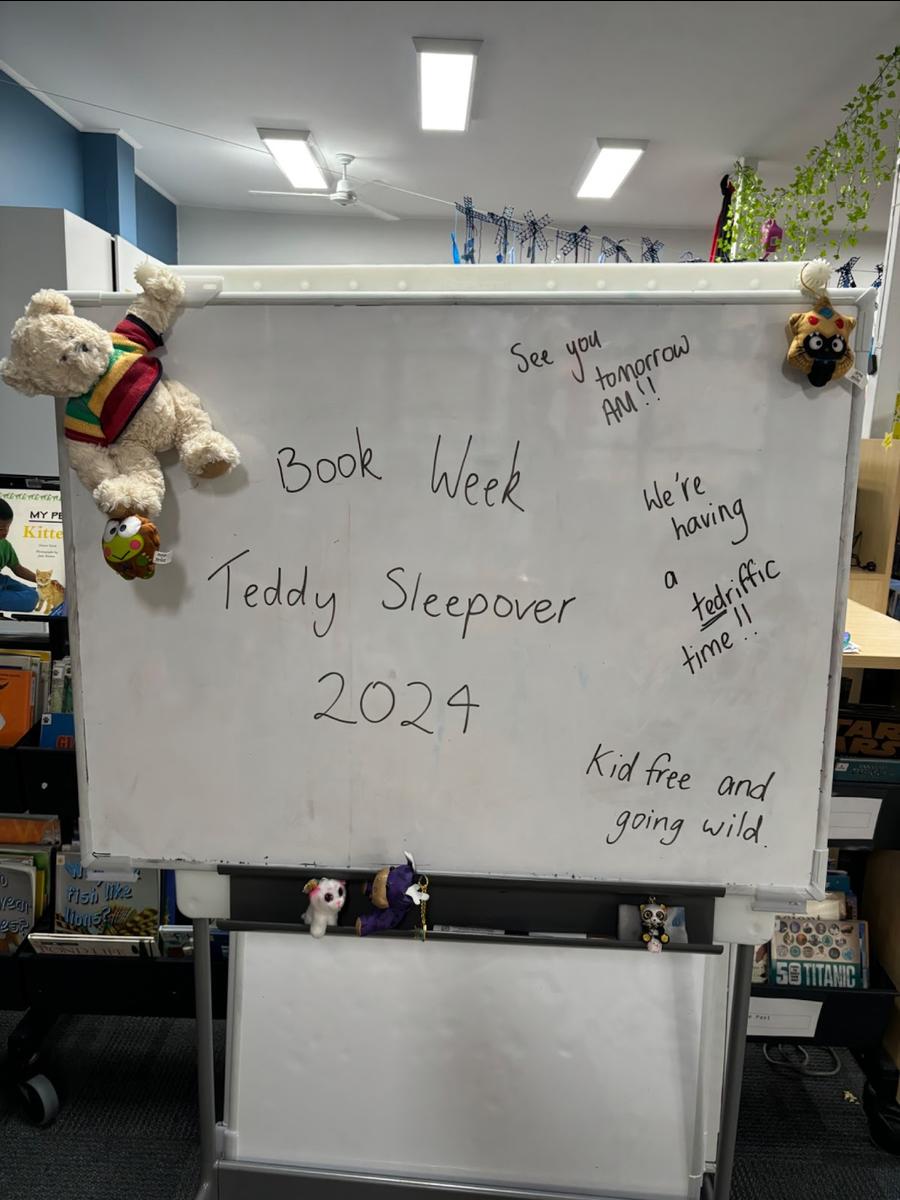 See you
tomorrow
AM!!
Book Week
Teddy Sleepover
2024
We're
having
a
tedriffic
time!!
Kid free and
going wild.
MY PE
Kitte
fish like
lions?
STAR
WARS
TITANIC